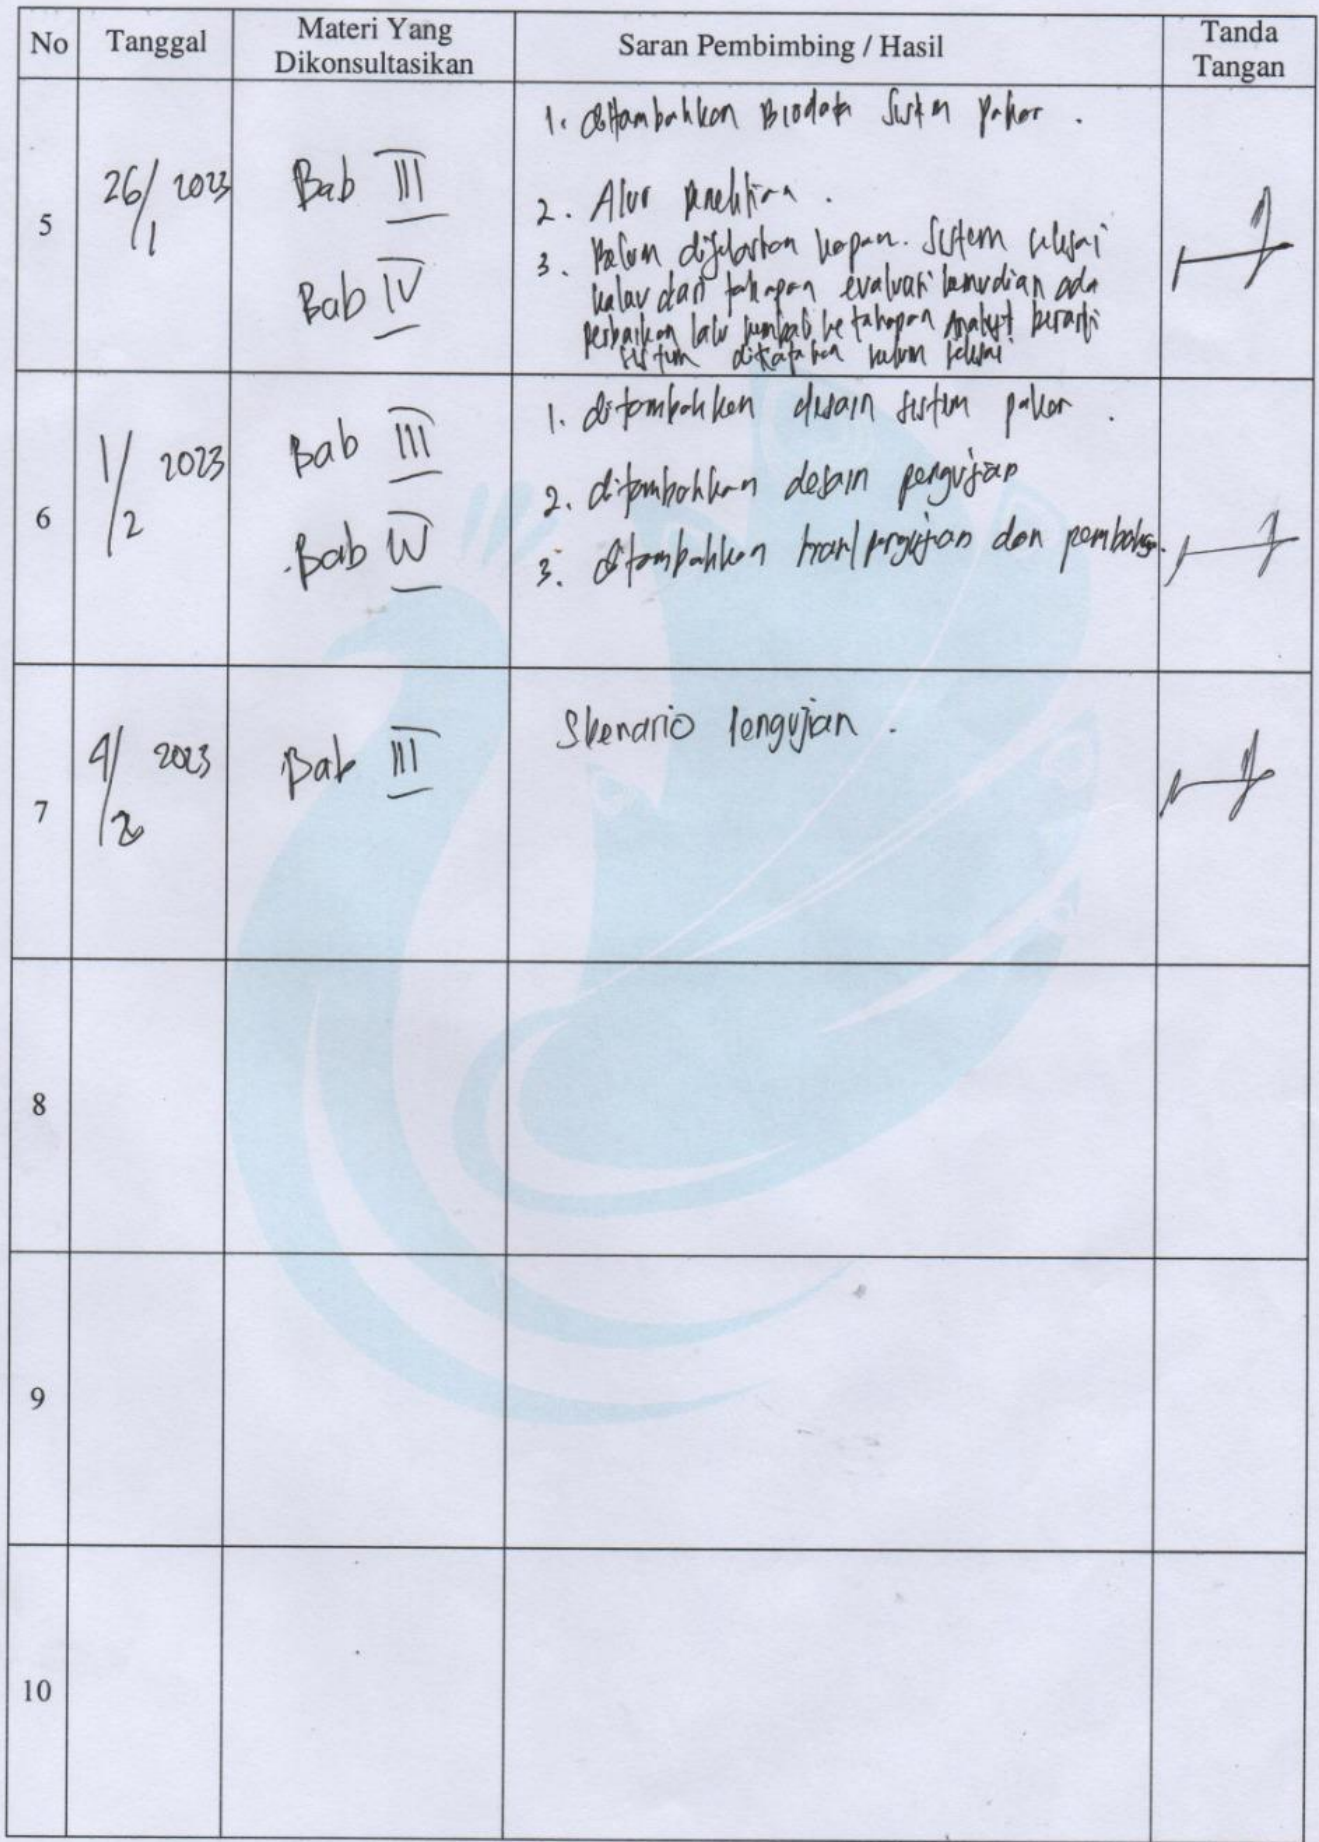 No Tanggal Materi Yang Dikonsultasikan Saran Pembimbing / Hasil Tanda Tangan
5
26/1 2023
Bab III
Bab IV
1. ditambahkan Biodata Sistem pakar .
2. Alur penelitian .
3. Belum dijelaskan kapan. Sistem selesai
kalau dari tahapan evaluasi kemudian ada
perbaikan lalu kembali ke tahapan Analyst berarti
sistem dikatakan belum selesai
6
1/2 2023
Bab III
Bab IV
1. ditambahkan desain sistem pakar .
2. ditambahkan desain pengujian
3. ditambahkan hasil pengujian dan
7
4/2 2023
Bab III
Skenario Pengujian .
8
9
10